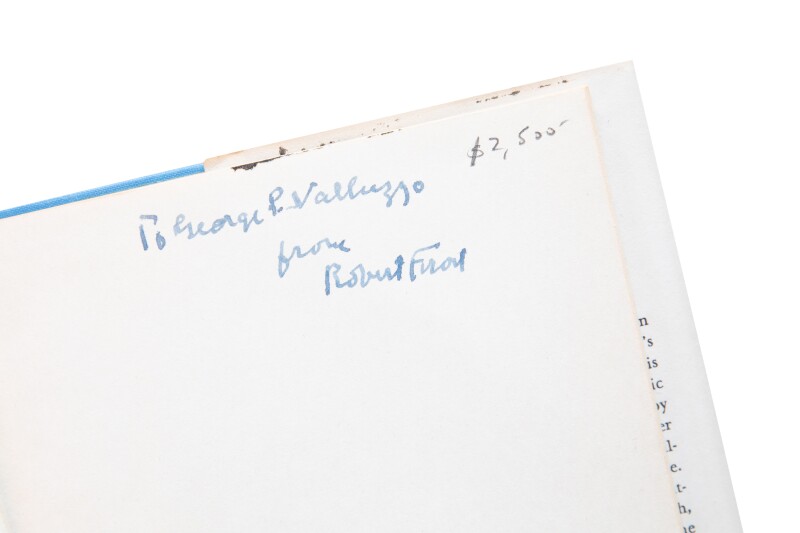 $2,500-
To George P. Valluzzo
from
Robert Frost
n
's
is
ic
by
er
l-
e.
t-
h,
ne